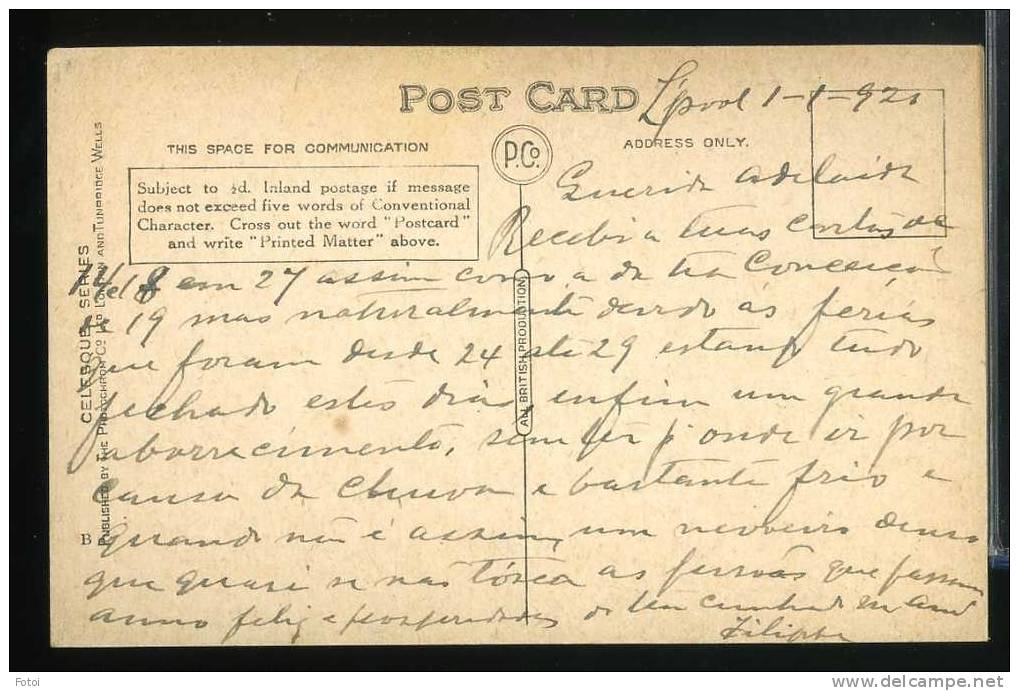 POST CARD
L'pool 1-1-921
THIS SPACE FOR COMMUNICATION
P.Co.
ADDRESS ONLY.
Subject to ½d. Inland postage if message
does not exceed five words of Conventional
Character. Cross out the word "Postcard"
and write "Printed Matter" above.
CELESQUE SERIES
PUBLISHED BY THE PHOTOCHROM CO. LTD LONDON AND TUNBRIDGE WELLS
ALL BRITISH PRODUCTION
B
Querida Adelaide
Recebi a tuas cartas de
em 27 assim como a da tia Conceição
de 19 mas naturalmente devido ás ferias
que foram desde 24 até 29 estando tudo
fechado estes dias, enfim um grande
aborrecimento, sem ter p' onde ir por
causa da chuva e bastante frio e
quando não é assim, um nevoeiro denso
que quasi se nas as pessoas que passam
anno feliz e prosperidades
Filippe
Fotoi
www.delcampe.net